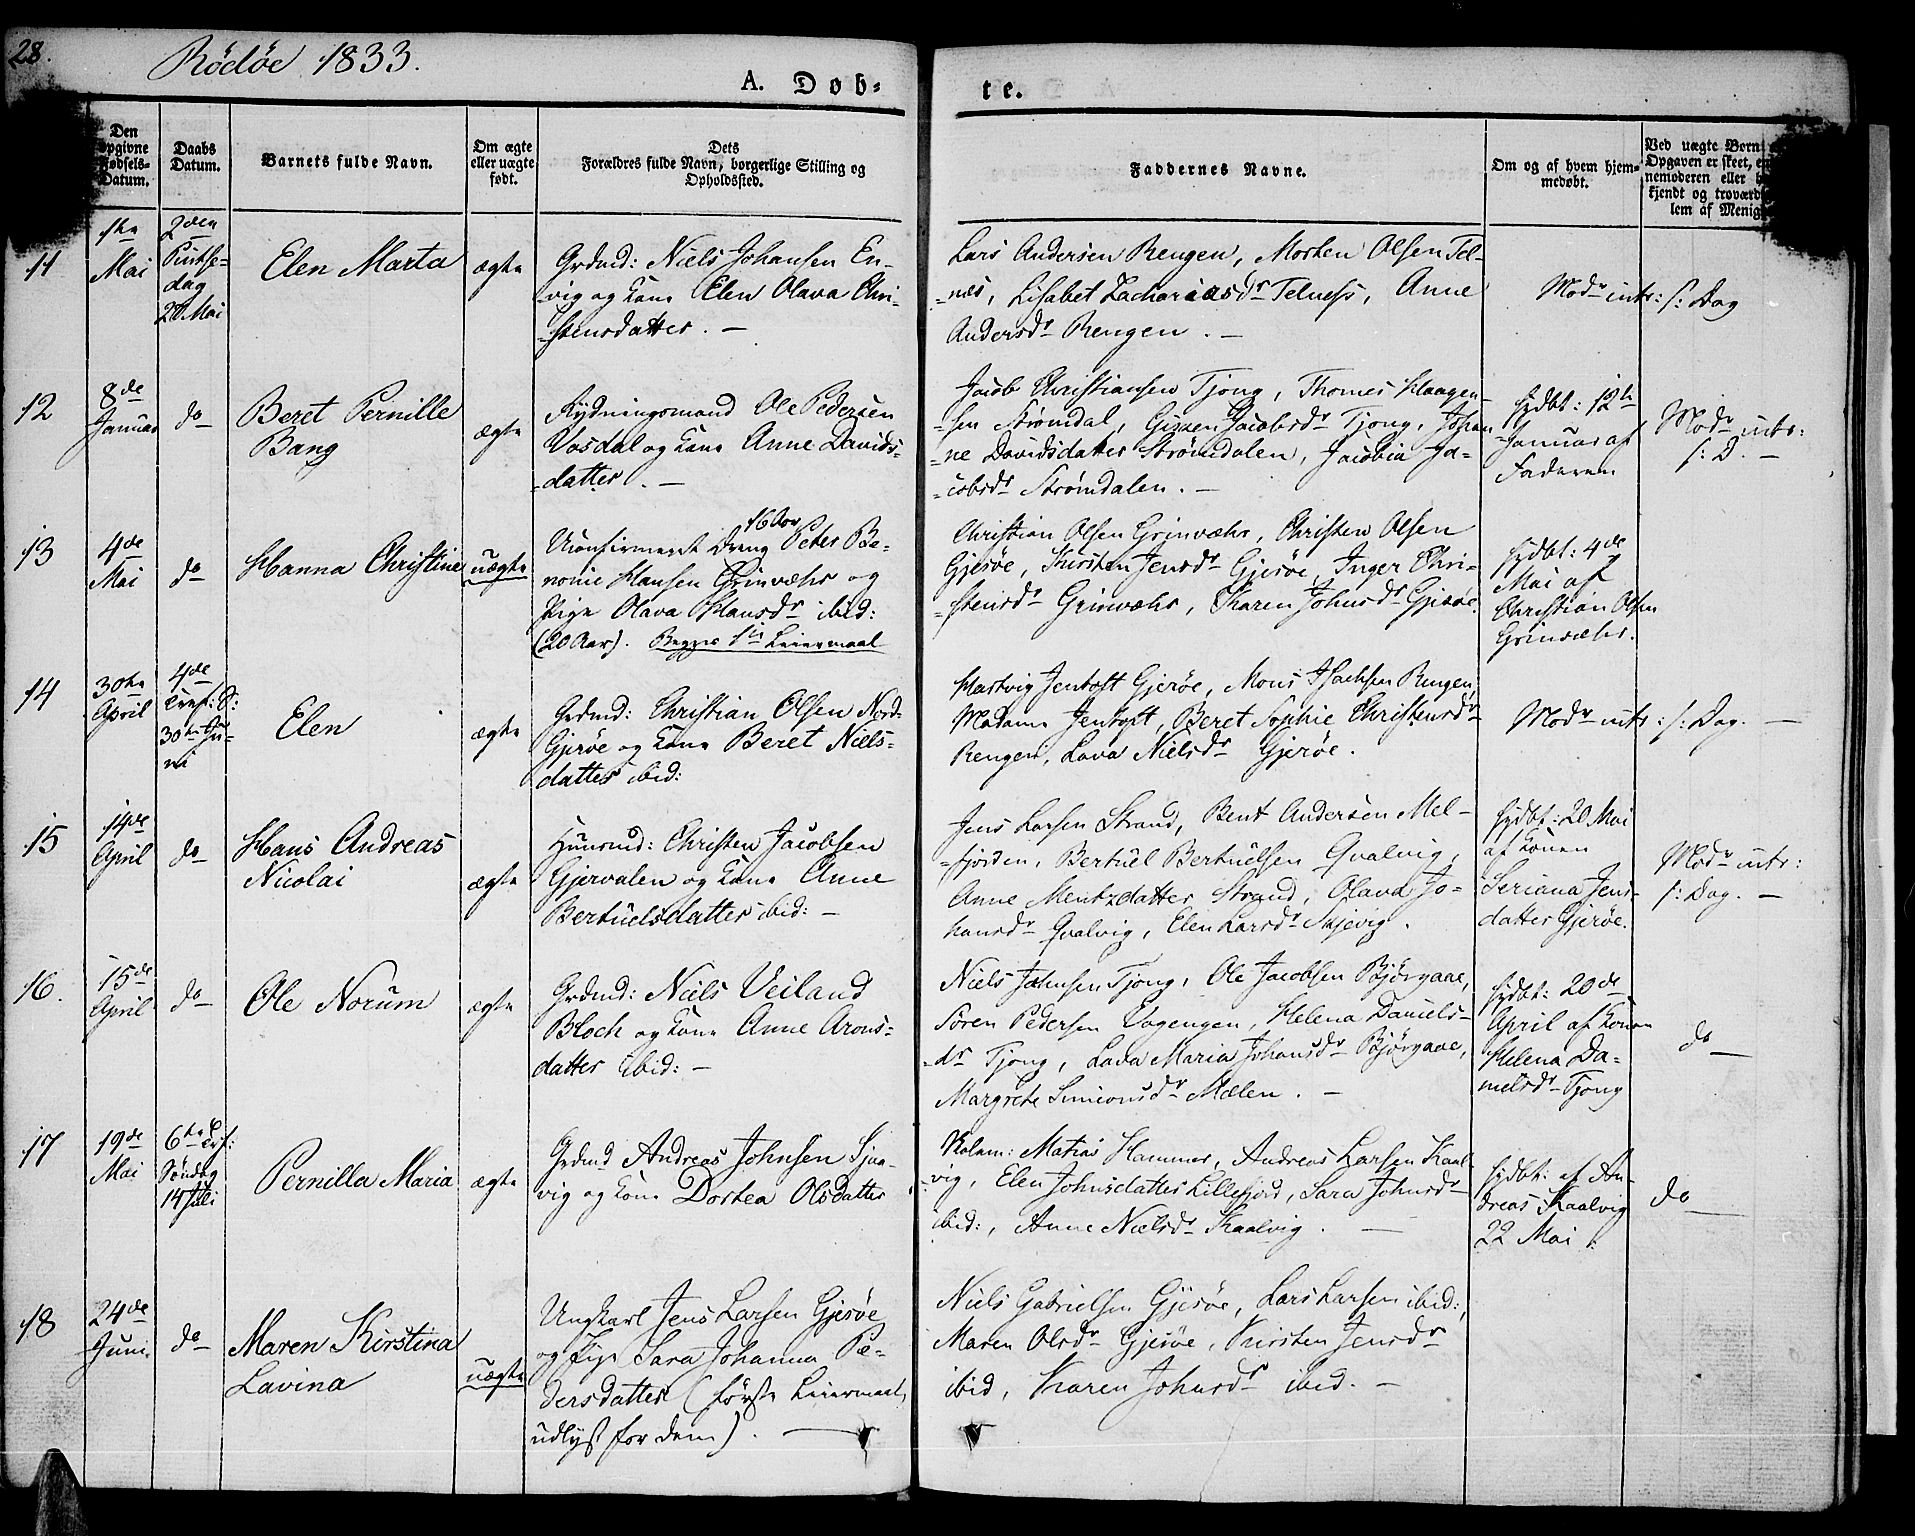 28.
Rödöe 1833.
A. Døb=
te.
Den opgivne Fødsels-Datum.
Daabs Datum.
Barnets fulde Navn.
Om ægte eller uægte født.
Dets Forældres fulde Navn, borgerlige Stilling og Opholdssted.
Faddernes Navne.
Om og af hvem hjem-medøbt.
Ved uægte Børn
Opgaven er skeet, en
nemoderen eller b
kjendt og troværd
lem af Menig
11
1ste
Mai
2den
Pintse-
dag
20 Mai
Elen Marta
ægte
Grdmd: Niels Johansen En-
vig og Kone Elen Olava Chri-
stensdatter. —
Lars Andersen Rengen, Morten Olsen Tel-
-næs, Lisabet Zachariasdr Telness, Anne
Andersdr Rengen. —
Modr intr: s: Dag
12
8de
Januar
do
Beret Pernille
Bang
ægte
Rydningsmand Ole Pedersen
Vasdal og Kone Anne Davids-
-datter. —
Jacob Christiansen Tjong, Thomes Haagen-
-sen Strømdal, Jacobsdr Tjong, Johan
-ne Davidsdatter Strømdalen, Jacobia Ja-
-cobsdr Strømdalen. —
hjdbt: 12te
Januar af
Faderen
Modr intr:
s: D. —
13
4de
Mai
do
Hanna Christine
uægte
16 Aar
Uconfirmeret Dreng Peter Be-
nonie Hansen Grinvæhr og
Pige Olava Hansdr ibid:
(20 Aar). Begges 1ste Leiermaal
Christian Olsen Grinvæhr, Christen Olsen
Gjerøe, Kirsten Jensdr Gjerøe, Inger Chri-
-stensdr Grinvæhr, Karen Johnsdr Gjerøe.
hjdbt: 4de
Mai af
Christian Olsen
Grinvæhr.
14
30te
April
4de
Tref: S:
30te Ju-
ni
Elen
ægte
Grdmd: Christian Olsen Nord-
Gjerøe og Kone Beret Niels-
datter ibid:
Hartvig Jentoft Gjerøe, Mons Isachsen Rengen,
Madame Jentoft, Beret Sophie Christensdr
Rengen, Lava Nielsdr Gjerøe.
Modr intr: s: Dag. —
15
14de
April
do
Hans Andreas
Nicolai
ægte
Huusmd: Christen Jacobsen
Gjervalen og Kone Anne
Bertuelsdatter ibid: —
Jens Larsen Strand, Bent Andersen Mel-
-fjorden, Bertuel Bertuelsen Qvalvig,
Anne Mentzdatter Strand, Olava Jo-
hansdr Qvalvig, Elen Larsdr Skjevig.
hjdbt: 20 Mai
af Konen
Seriana Jens-
datter Gjerøe.
Modr intr:
s: Dag. —
16.
15de
April
do
Ole Norum
ægte
Grdmd: Niels Veiland
Bloch og Kone Anne Arons-
datter ibid: —
Niels Johnsen Tjong, Ole Jacobsen Bjørgaae,
Sören Pedersen Vagengen, Helena Daniels-
-dr Tjong, Lava Maria Johansdr Bjørgaae,
Margrete Simonsdr Mælen. —
hjdbt: 20de
April af Konen
Helena Da-
nielsdr Tjong
do
17
19de
Mai
6te Tref:
Söndag
14 Juli
Pernilla Maria
ægte
Grdmd Andreas Johnsen
vig og Kone Dortea Olsdatter
Matias Hammer, Andreas Larsen Kaal-
vig, Elen Johnsdatter Lillefjord, Sara Johnsdr
ibid:, Anne Nielsdr Kaalvig. —
hjdbt: af An-
dreas Kaalvig
22 Mai:
do
18
24de
Juni
do
Maren Kirstina
Lavina
uægte
Ungkarl Jens Larsen Gjerøe
og Pige Sara Johanna Pe-
dersdatter (første Leiermaal,
udlyst for dem). —
Niels Gabrielsen Gjerøe, Lars Larsen ibid:,
Maren Olsdr Gjerøe, Kirsten Jensdr
ibid, Karen Johnsdr ibid. —